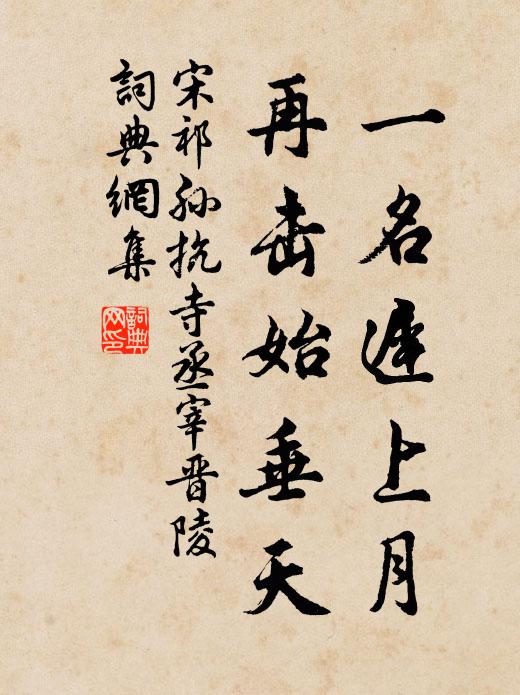 一名遅上月
再击始垂天
宋祁孙抗寺丞宰晋陵
詞典網集
詞典网印